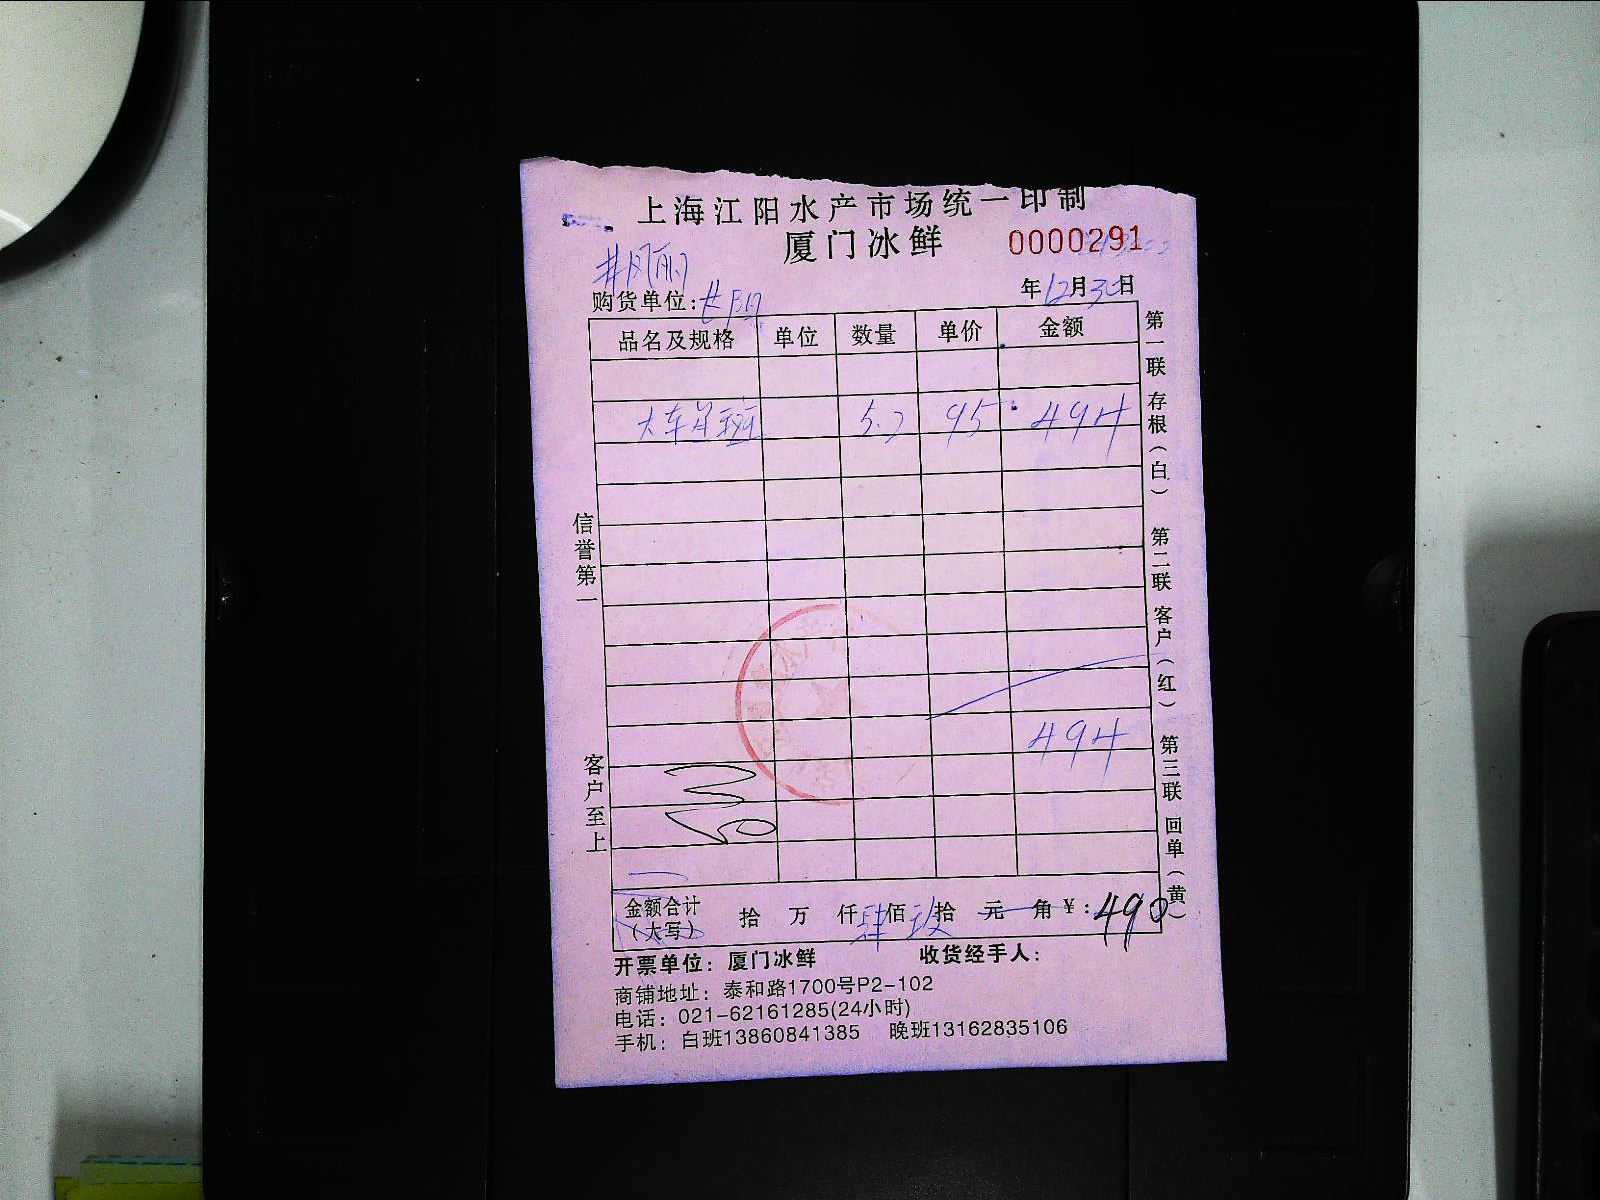 上海江阳水产市场统一印制
厦门冰鲜 0000291
年12月30日
购货单位:
品名及规格 单位 数量 单价 金额
5.2 95 494
494
金额合计(大写) 拾 万 仟肆佰玖拾 元 角 ¥:490
开票单位:厦门冰鲜 收货经手人:
商铺地址:泰和路1700号P2-102
电话:021-62161285(24小时)
手机:白班13860841385 晚班13162835106
信誉第一
客户至上
第一联 存根(白) 第二联 客户(红) 第三联 回单(黄)